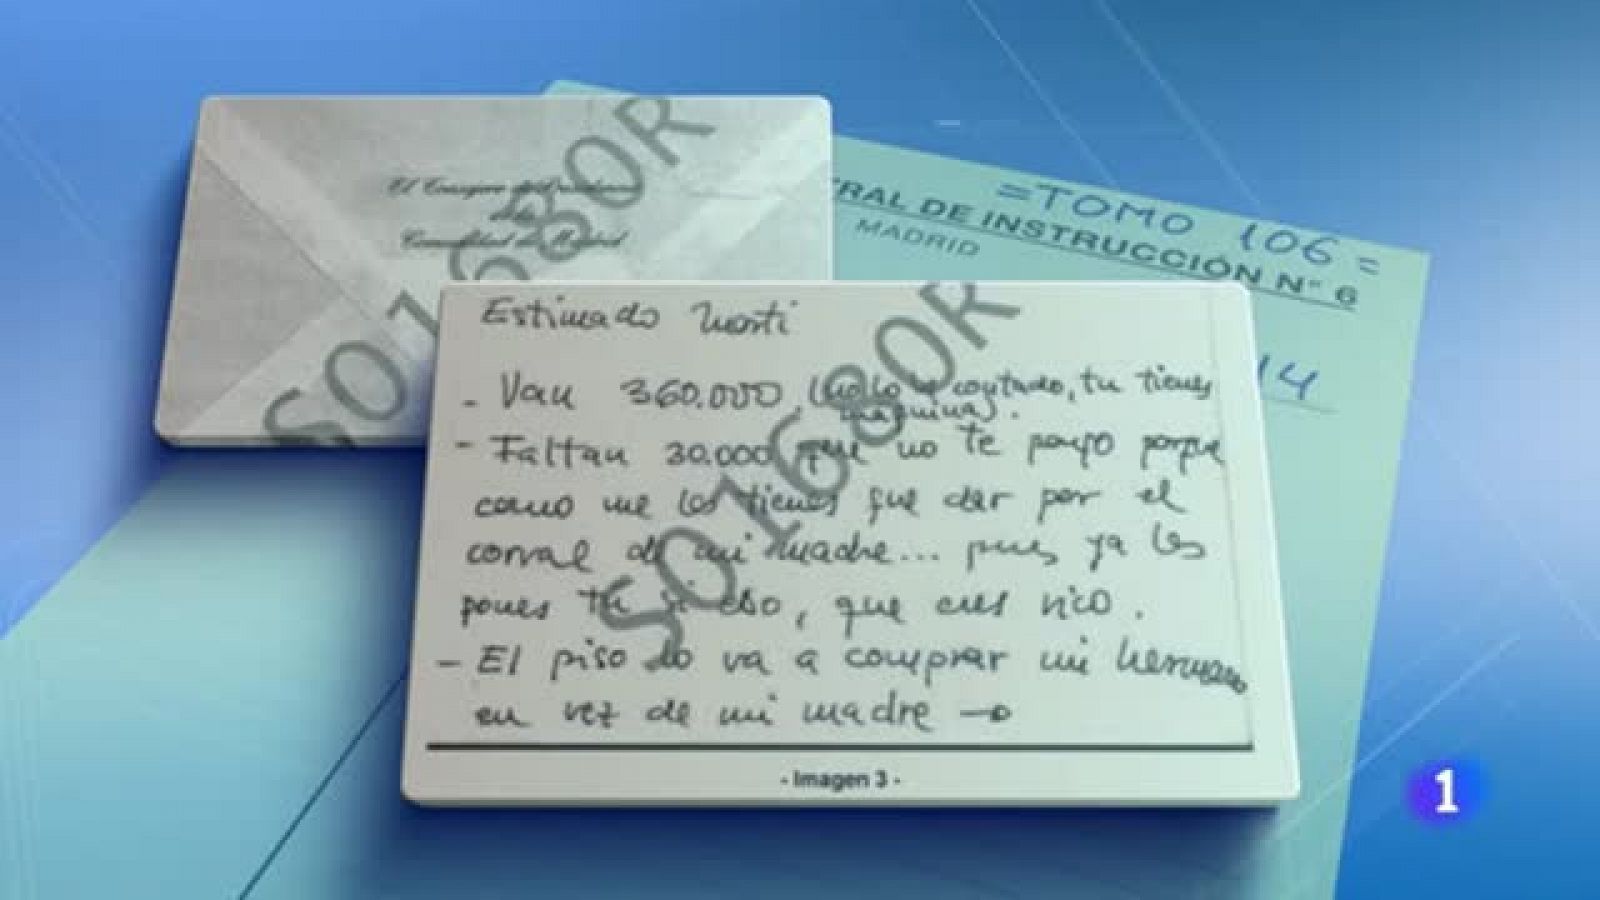 El Consejero de Presidencia
de la
Comunidad de Madrid
SO1680R
=TOMO 106=
TRAL DE INSTRUCCIÓN Nº 6
MADRID
14
Estimado Marti
- Van 360.000, (no lo he contado, tu tienes
maquina).
- Faltan 30.000 que no te pongo porque
como me los tienes que dar por el
corral de mi madre... pues ya los
pones tu si eso, que eres rico.
- El piso lo va a comprar mi hermano
en vez de mi madre →
SO1680R
- Imagen 3 -
1